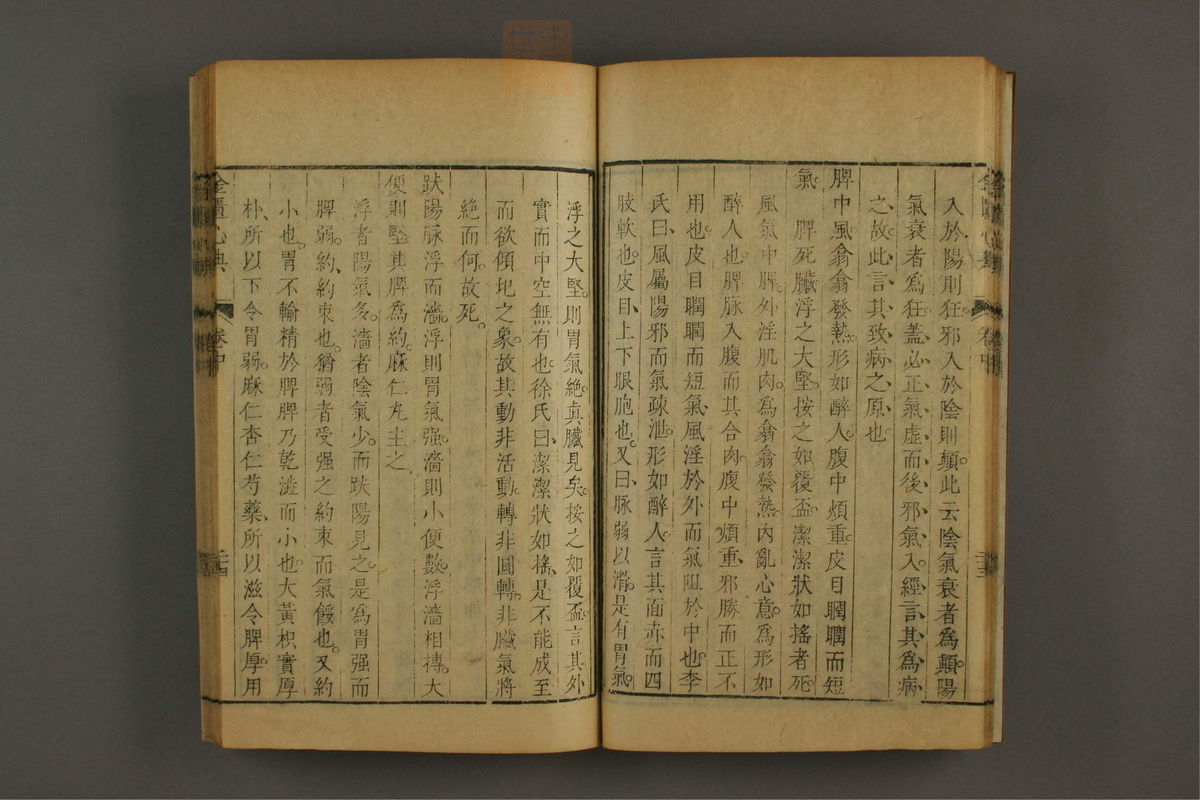 入於陽則狂邪入於陰則顛此云陰氣衰者爲顛陽
氣衰者爲狂蓋必正氣虛而後邪氣入經言其爲病
之故此言其致病之原也
脾中風翕翕發熱形如醉人腹中煩重皮目瞤瞤而短
氣 脾死臟浮之大堅按之如覆盃潔潔狀如搖者死
風氣中脾外淫肌肉爲翕翕發熱內亂心意爲形如
醉人也脾脉入腹而其合肉腹中煩重邪勝而正不
用也皮目瞤瞤而短氣風淫於外而氣阻於中也李
氏曰風屬陽邪而氣疎泄形如醉人言其面赤而四
肢軟也皮目上下眼胞也又曰脉弱以滑是有胃氣
浮之大堅則胃氣絶真臟見矣按之如覆盃言其外
實而中空無有也徐氏曰潔潔狀如搖是不能成至
而欲傾圯之象故其動非活動轉非圓轉非臟氣將
絶而何故死
趺陽脉浮而濇浮則胃氣强濇則小便數浮濇相摶大
便則堅其脾爲約麻仁丸主之
浮者陽氣多濇者陰氣少而趺陽見之是爲胃强而
脾弱約約束也猶弱者受强之約束而氣餒也又約
小也胃不輸精於脾脾乃乾澁而小也大黃枳實厚
朴所以下令胃弱麻仁杏仁芍藥所以滋令脾厚用
金匱心典 卷中